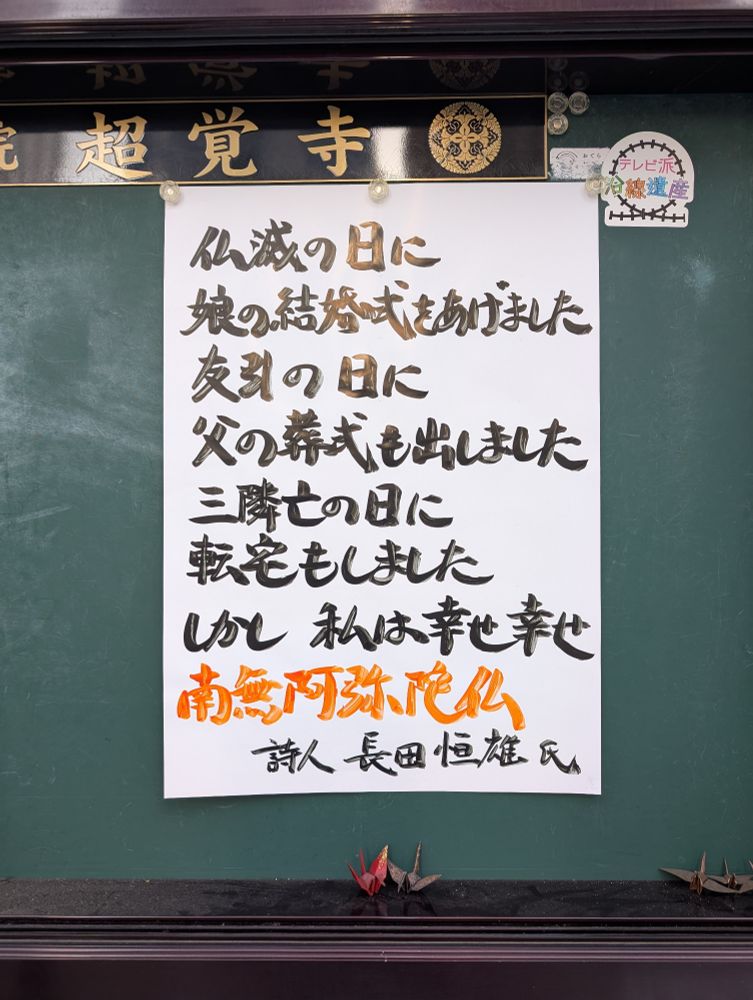 院 超覚寺
テレビ派
冷線遺産
仏滅の日に
娘の結婚式をあげました
友引の日に
父の葬式も出しました
三隣亡の日に
転宅もしました
しかし 私は幸せ幸せ
南無阿弥陀仏
詩人 長田恒雄氏